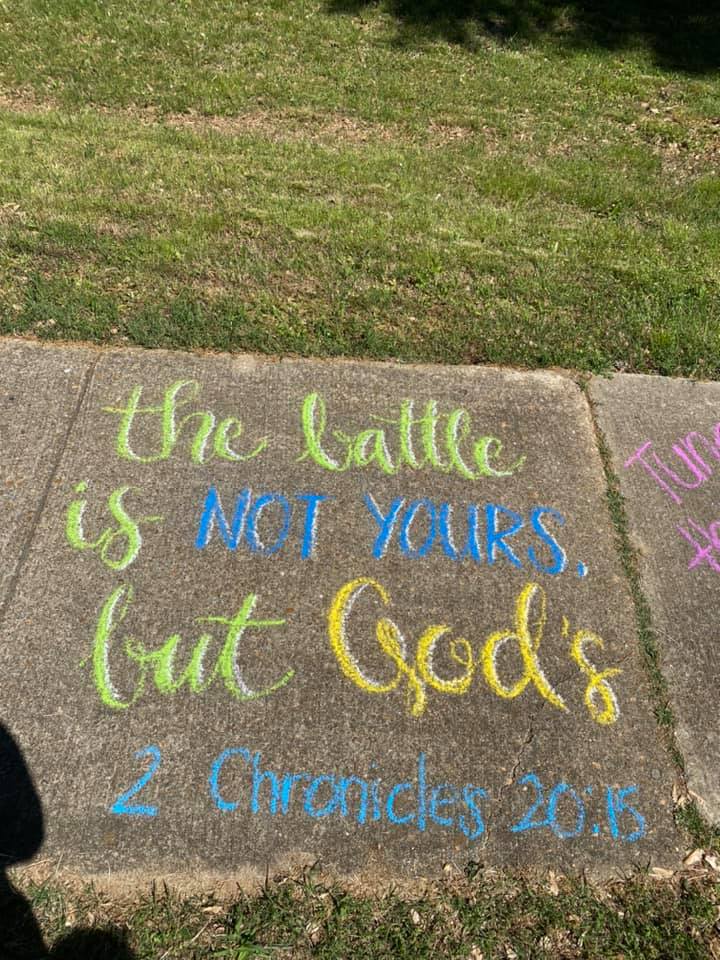 the battle
is NOT YOURS,
but God's
2 Chronicles 20:15